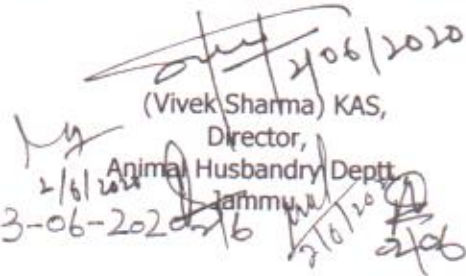 2/06/2020
(Vivek Sharma) KAS,
Director,
Animal Husbandry Deptt
Jammu
2/6/2020
3-06-2020
2/6
2/6/20
2/06